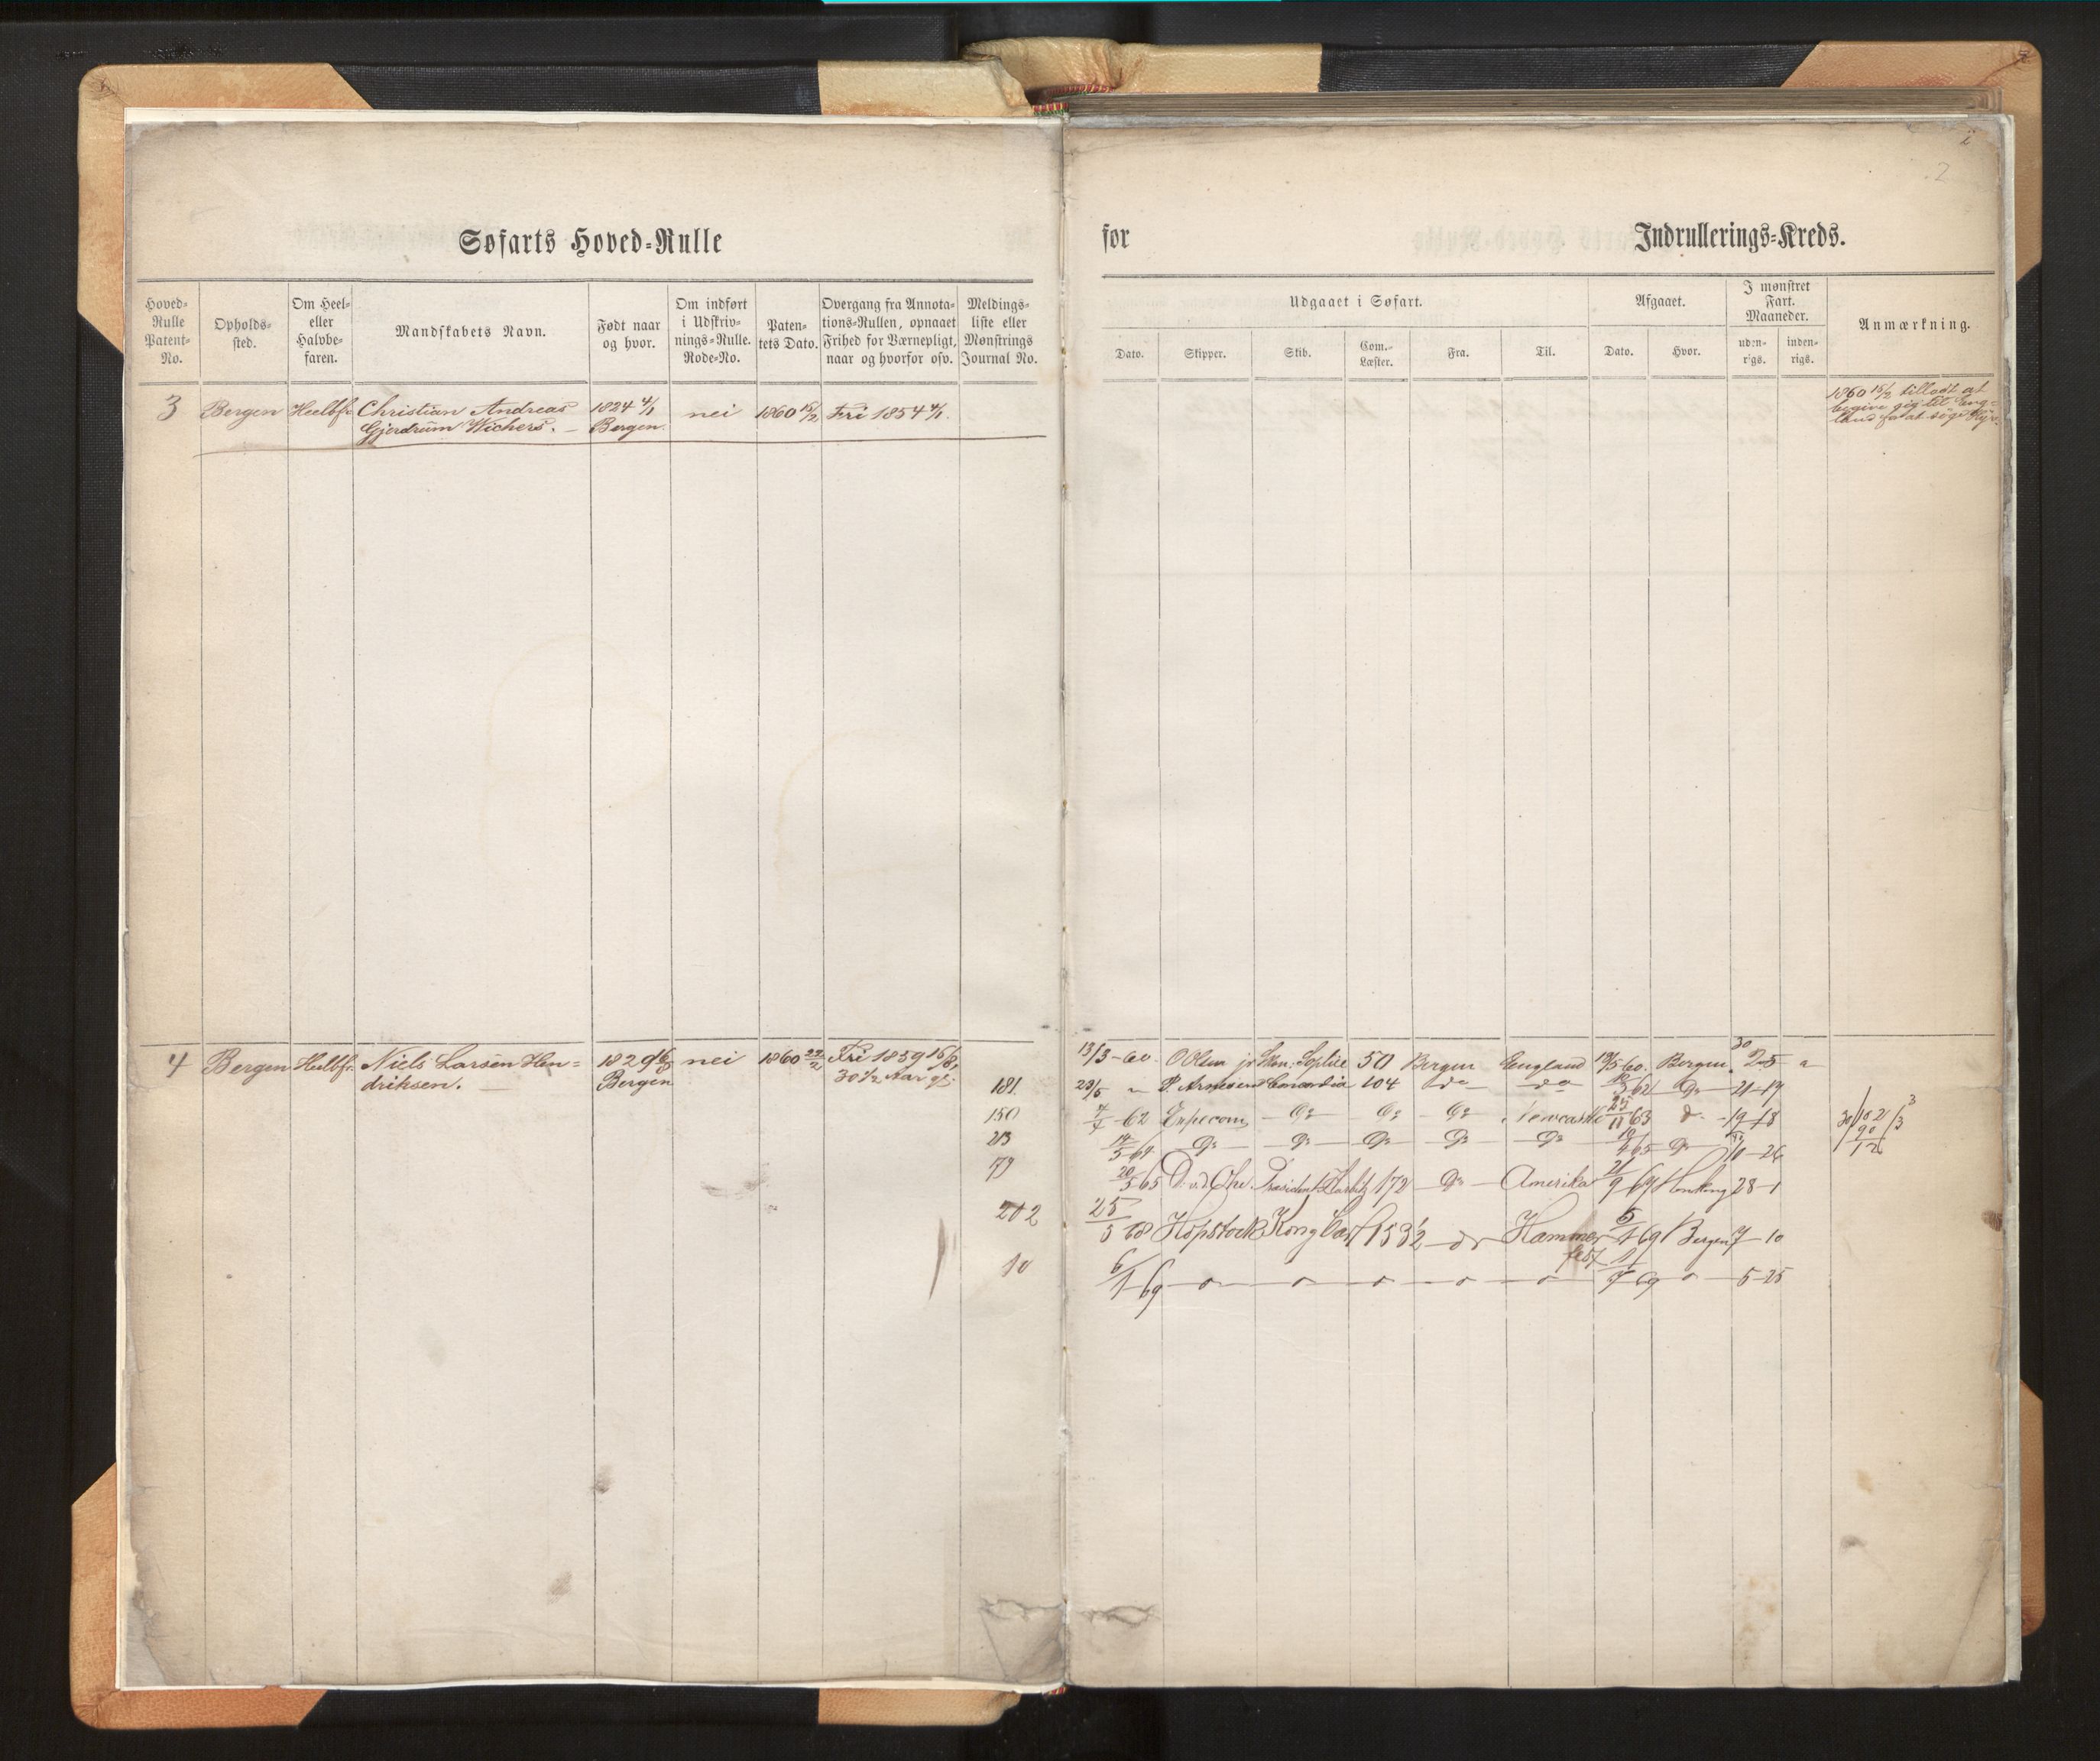 2
2
Søfarts Hoved-Rulle
for Indrullerings-Kreds.
Hoved-Rulle Patent-No.
Opholds-sted.
Om Heel- eller Halvbe-faren.
Mandskabets Navn.
Født naar og hvor.
Om indført i Udskriv-nings-Rulle. Rode-No.
Paten-tets Dato.
Overgang fra Annota-tions-Rullen, opnaaet Frihed for Værnepligt, naar og hvorfor osv.
Meldings-liste eller Mønstrings Journal No.
Udgaaet i Søfart.
Afgaaet.
I mønstret Fart. Maaneder.
Anmærkning.
Dato. Skipper. Skib. Com.-Læster. Fra. Til. Dato. Hvor. uden-rigs. inden-rigs.
3 Bergen Heelbf. Christian Andreas 1824 4/1 nei 1860 15/2 Fri 1854 4/1.
Gjerdrum Wichers. Bergen.
1860 15/2 tilladt at
begive sig til Eng-
land for at søge Hyre.
4 Bergen Heelbf. Niels Larsen Hen- 1829 16/8 nei 1860 22/2 Fri 1859 16/8
driksen. Bergen 30 1/2 Aar gl.
13/3-60. O Olsen jr Sophie 50 Bergen England 19/5-60. Bergen.
181. 23/5 " P. Arnesen Concordia 104 do do 62 Do 21-19
150 62 Do Do Do Newcastle 25/11 63 do 19-18
213 Do Do Do Do Do 65 Do 10-26
79 20/5 65 Præsident Harbitz 172 Do Amerika 21/9 67 28-1
202 25/5 68 Hopstock Kong Carl 153 1/2 do Hammer- 5/1 69 Bergen 7-10
fest
10 6/1 69 69 5-25
30/102/3
90
12